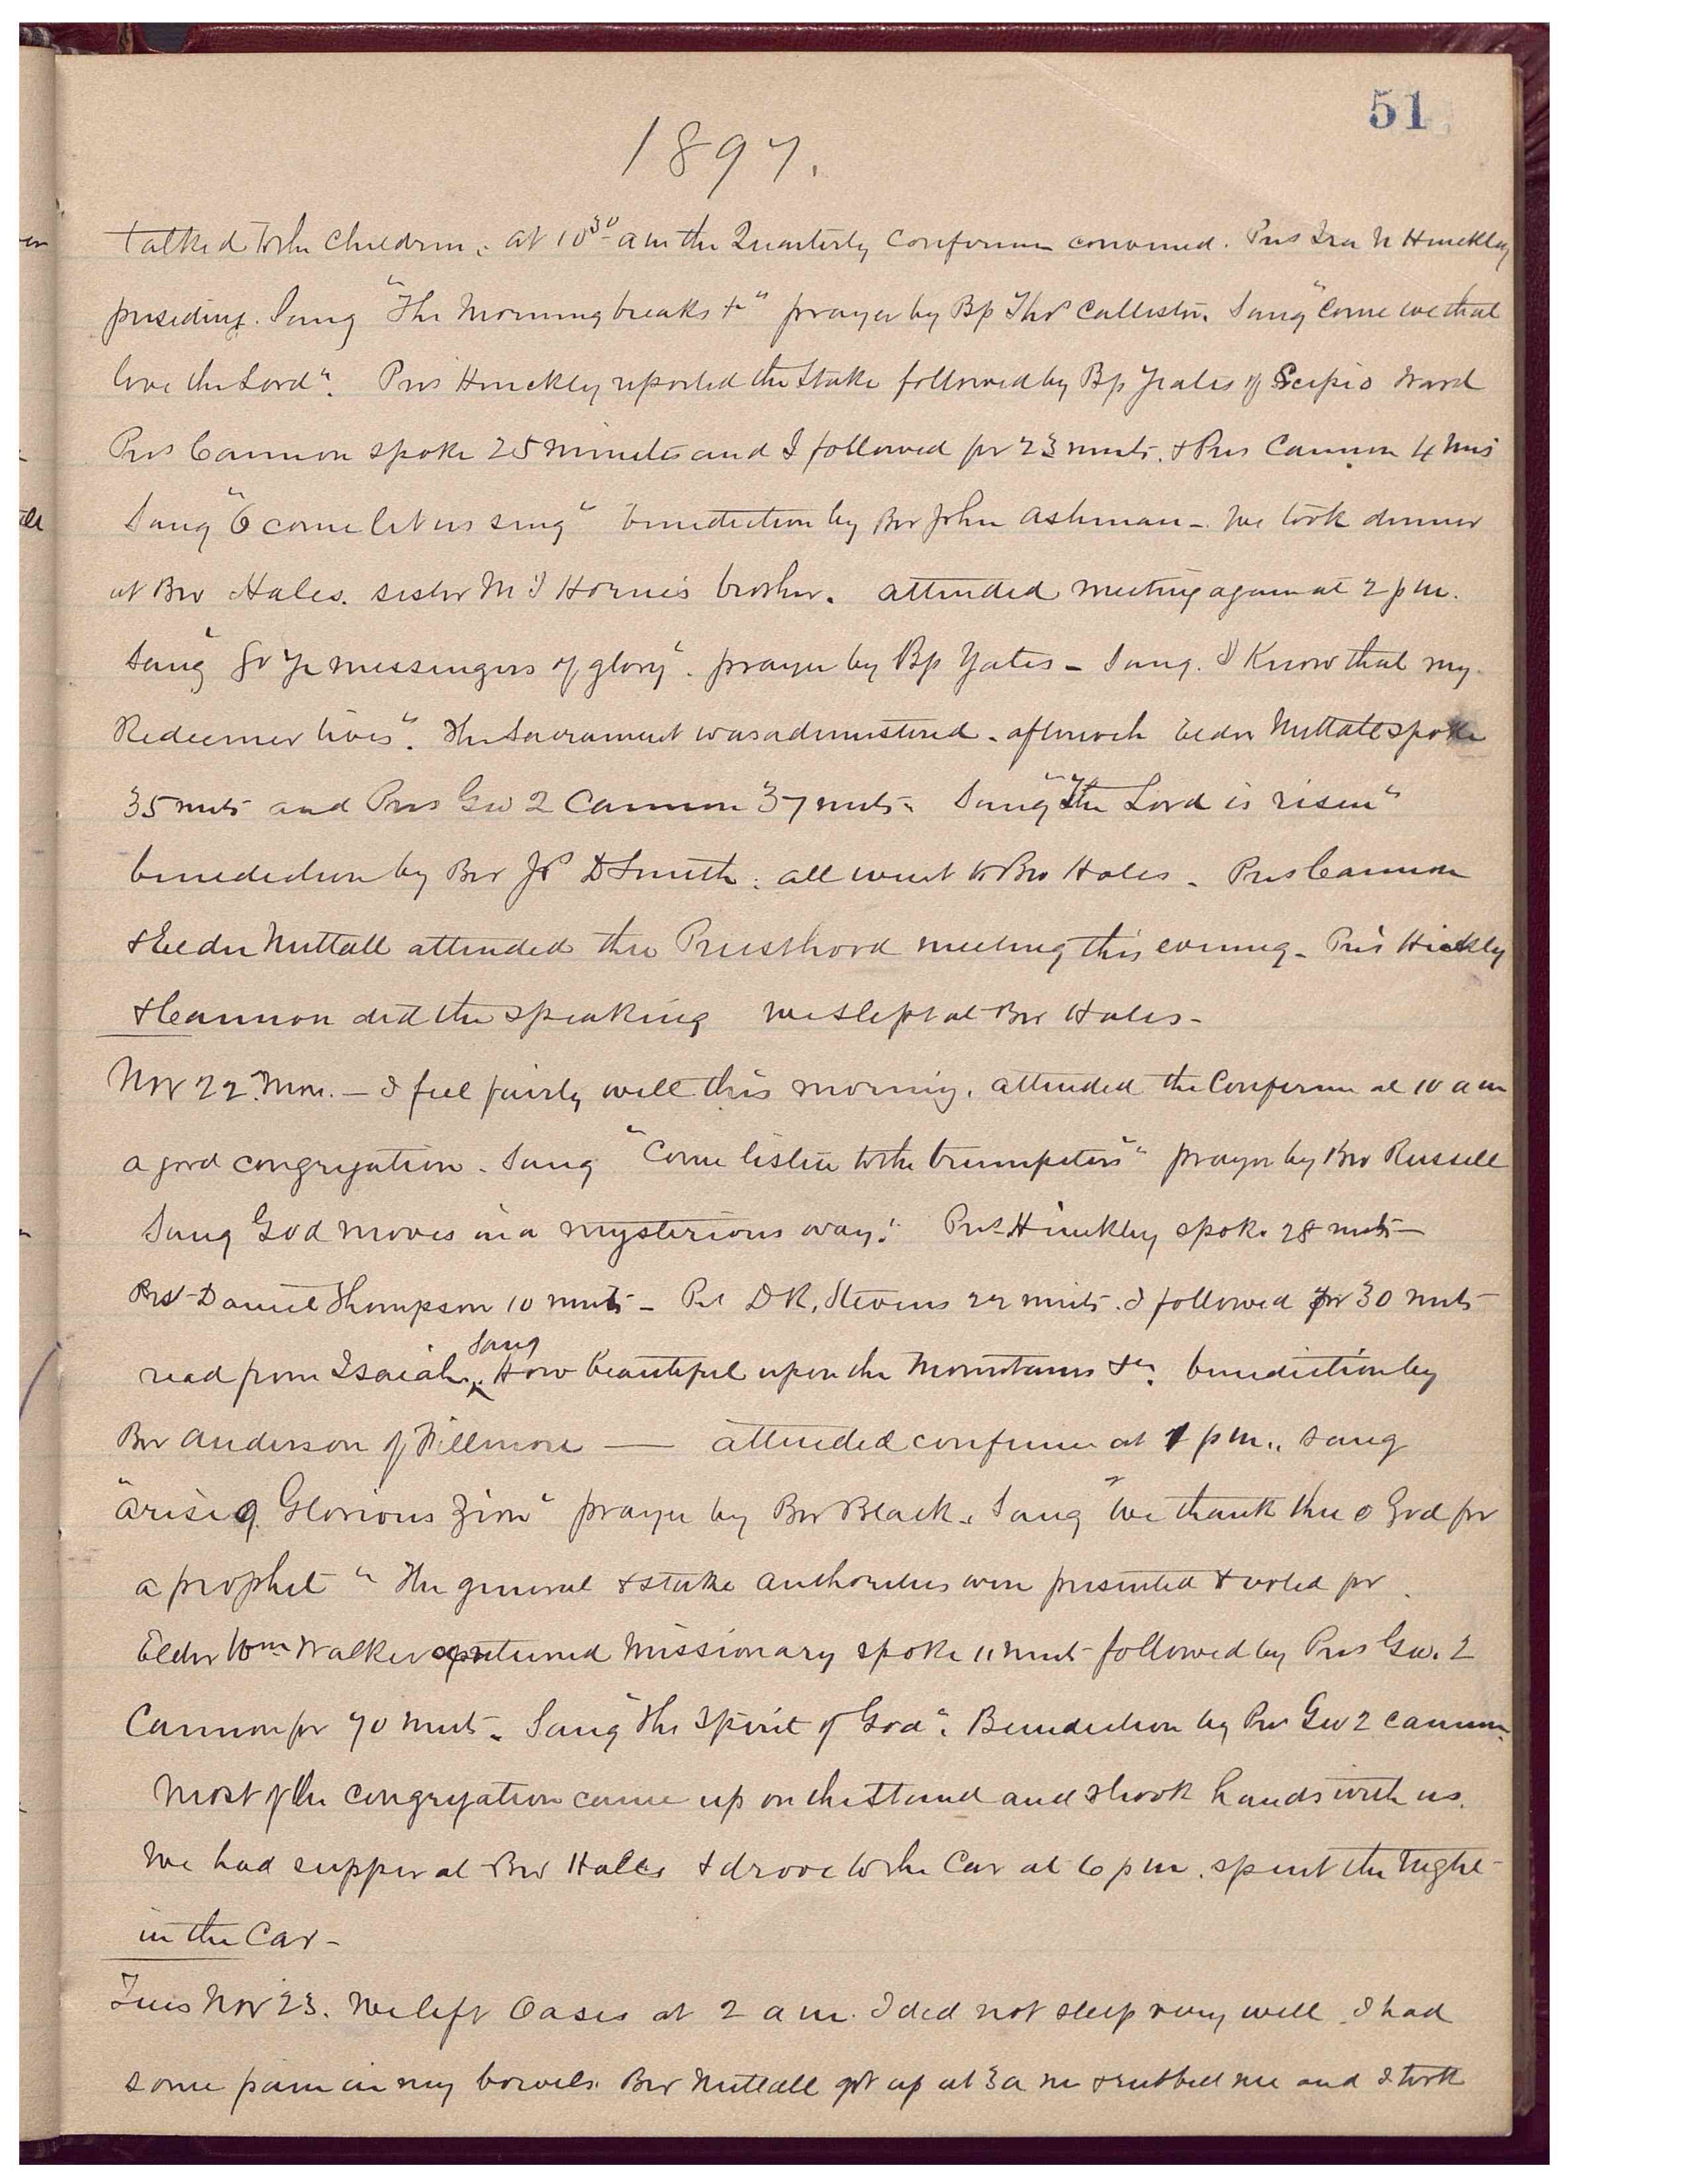 51
1897.
talked to the children. at 10 30 am the Quarterly Conference convened. Pres Ira N Hinckley
presiding. Sang "The Morning breaks &c" prayer by Bp Thos Callister. Sang "Come we that
love the Lord". Pres Hinckley reported the Stake followed by Bp Yates of Scipio Ward
Pres Cannon spoke 25 minutes and I followed for 23 muts. & Pres Cannon 4 mis
Sang "O come let us sing" benediction by Bro John Ashman - We took dinner
at Bro Hales. sister M I Horne's brother. attended meeting again at 2 pm.
Sang "Go Ye messengers of glory". prayer by Bp Yates - Sang. I Know that my
Redeemer lives". The Sacrament was administered - afterwch Elder Nuttall spoke
35 muts and Pres Geo Q Cannon 37 muts. Sang "The Lord is risen"
benediction by Bro Js D Smith. all went to Bro Hales. Pres Cannon
& Elder Nuttall attended the Priesthood meeting this evening - Pres Hickly
& Cannon did the speaking We slept at Bro Hales -
Nov 22. Mon. - I feel fairly well this morning. attended the Conference at 10 am
a good congregation. Sang "Come listen to the trumpeters" prayer by Bro Russell
Sang God moves in a mysterious way". Pres Hinckley spoke 28 muts -
Pres Daniel Thompson 10 muts - Pres D R, Stevens 22 muts. I followed for 30 muts
read from Isaiah. Sang "How beautiful upon the Mountains &c". benediction by
Bro Anderson of Fillmore — attended conference at 1 pm., sang
"arise O Glorious Zion" prayer by Bro Black. Sang "We thank thee O God for
a prophet" The general & stake authorities were presented & voted for.
Elder Wm Walker a returned Missionary spoke 11 muts followed by Pres Geo. Q
Cannon for 70 muts. Sang "The Spirit of God". Benediction by Pres Geo Q Cannon.
Most of the congregation came up on the Stand and shook hands with us.
We had supper at Bro Hales & drove to the Car at 6 pm. spent the night
in the Car -
Tues Nov 23. We left Oasis at 2 am. I did not sleep very well. I had
some pain in my bowels. Bro Nuttall got up at 3 a m & rubbed me and I took